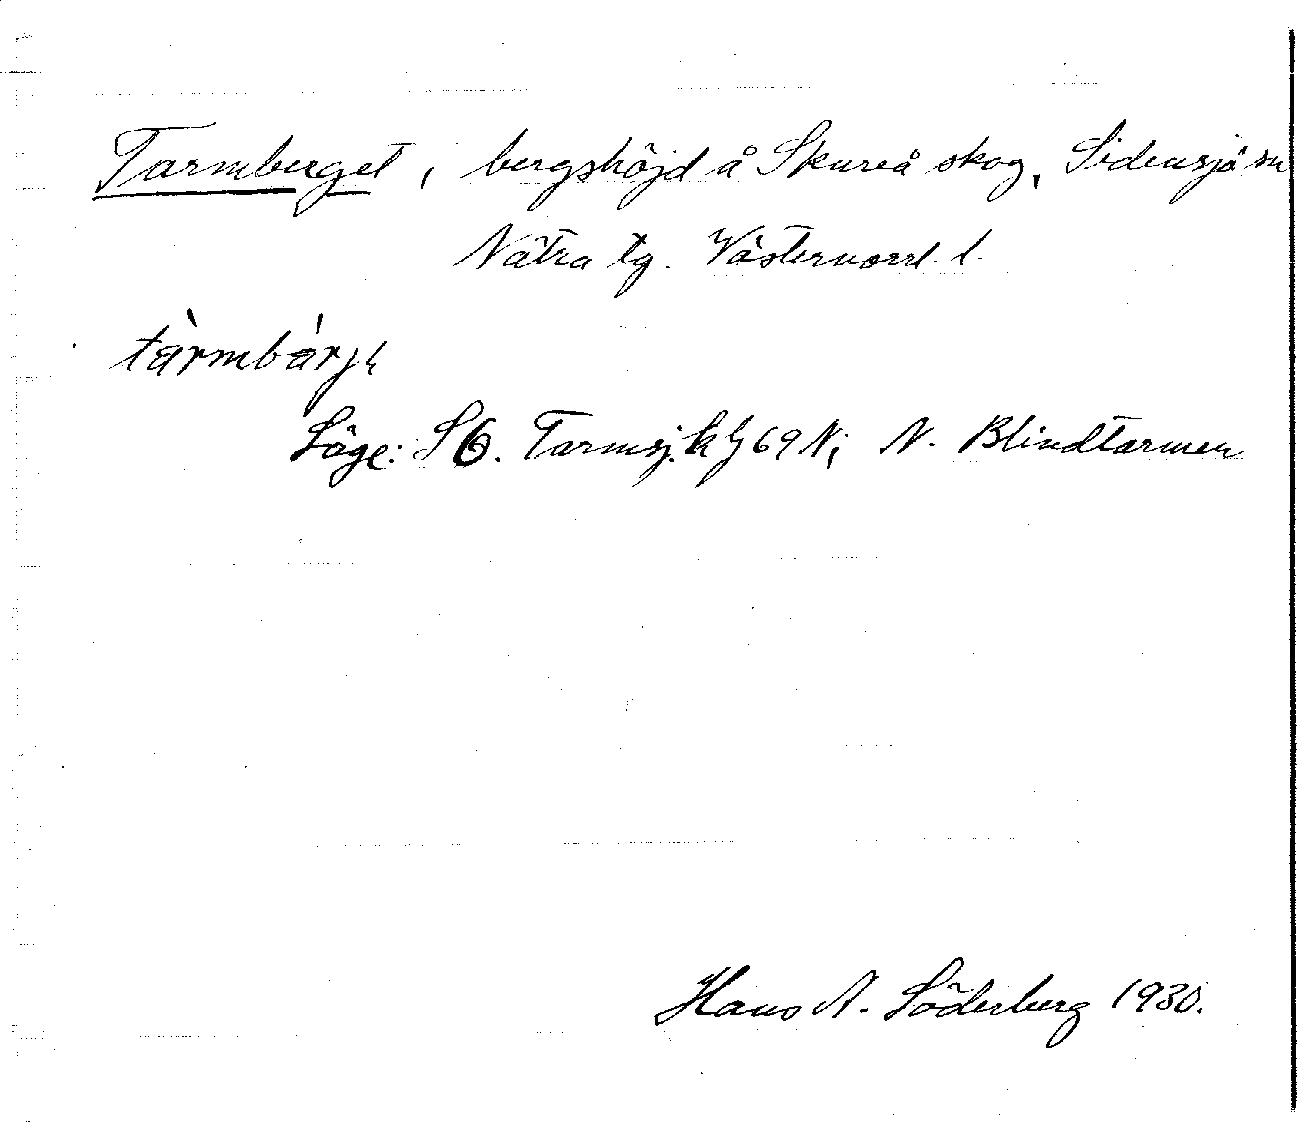 Tarmberget, bergshöjd å Skureå skog, Sidensjö sn
Nätra tg. Västernorrl. l.
tàrmbárjɘ
Läge: S Ö. Tarmsj. h f 69 N; N. Blindtarmen
Hans A. Söderberg 1930.